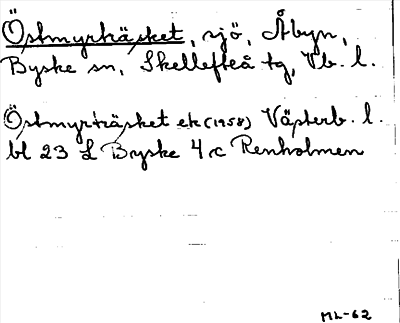 Östmyrträsket, sjö, Åbyn,
Byske sn, Skellefteå tg, Vb. l.
Östmyrträsket ek (1958) Västerb. l.
bl 23 L Byske 4 c Renholmen
ML-62